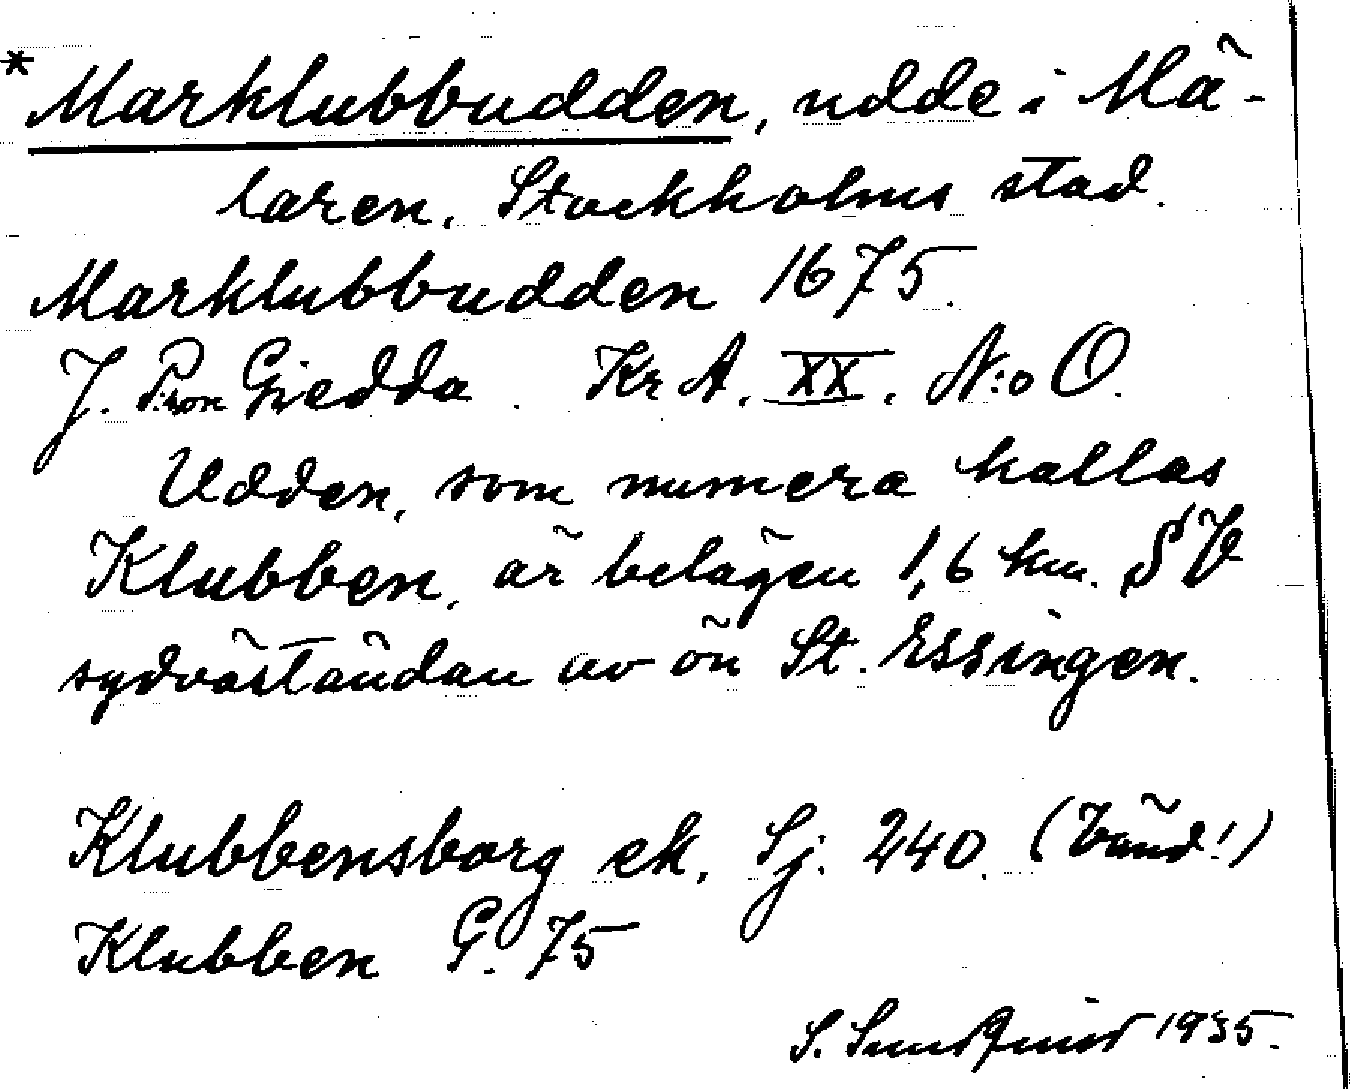 * Marklubbudden, udde i Mä-
laren. Stockholms stad.
Marklubbudden 1675.
J. P:son Giedda. Kr A. XX. N:o O.
Udden, som numera kallas
Klubben, är belägen 1,6 km. SV
sydväständan av ön St. Essingen.
Klubbensborg ek. Sj. 240. (Vänd!)
Klubben G. 75
S. Sundquist 1935.